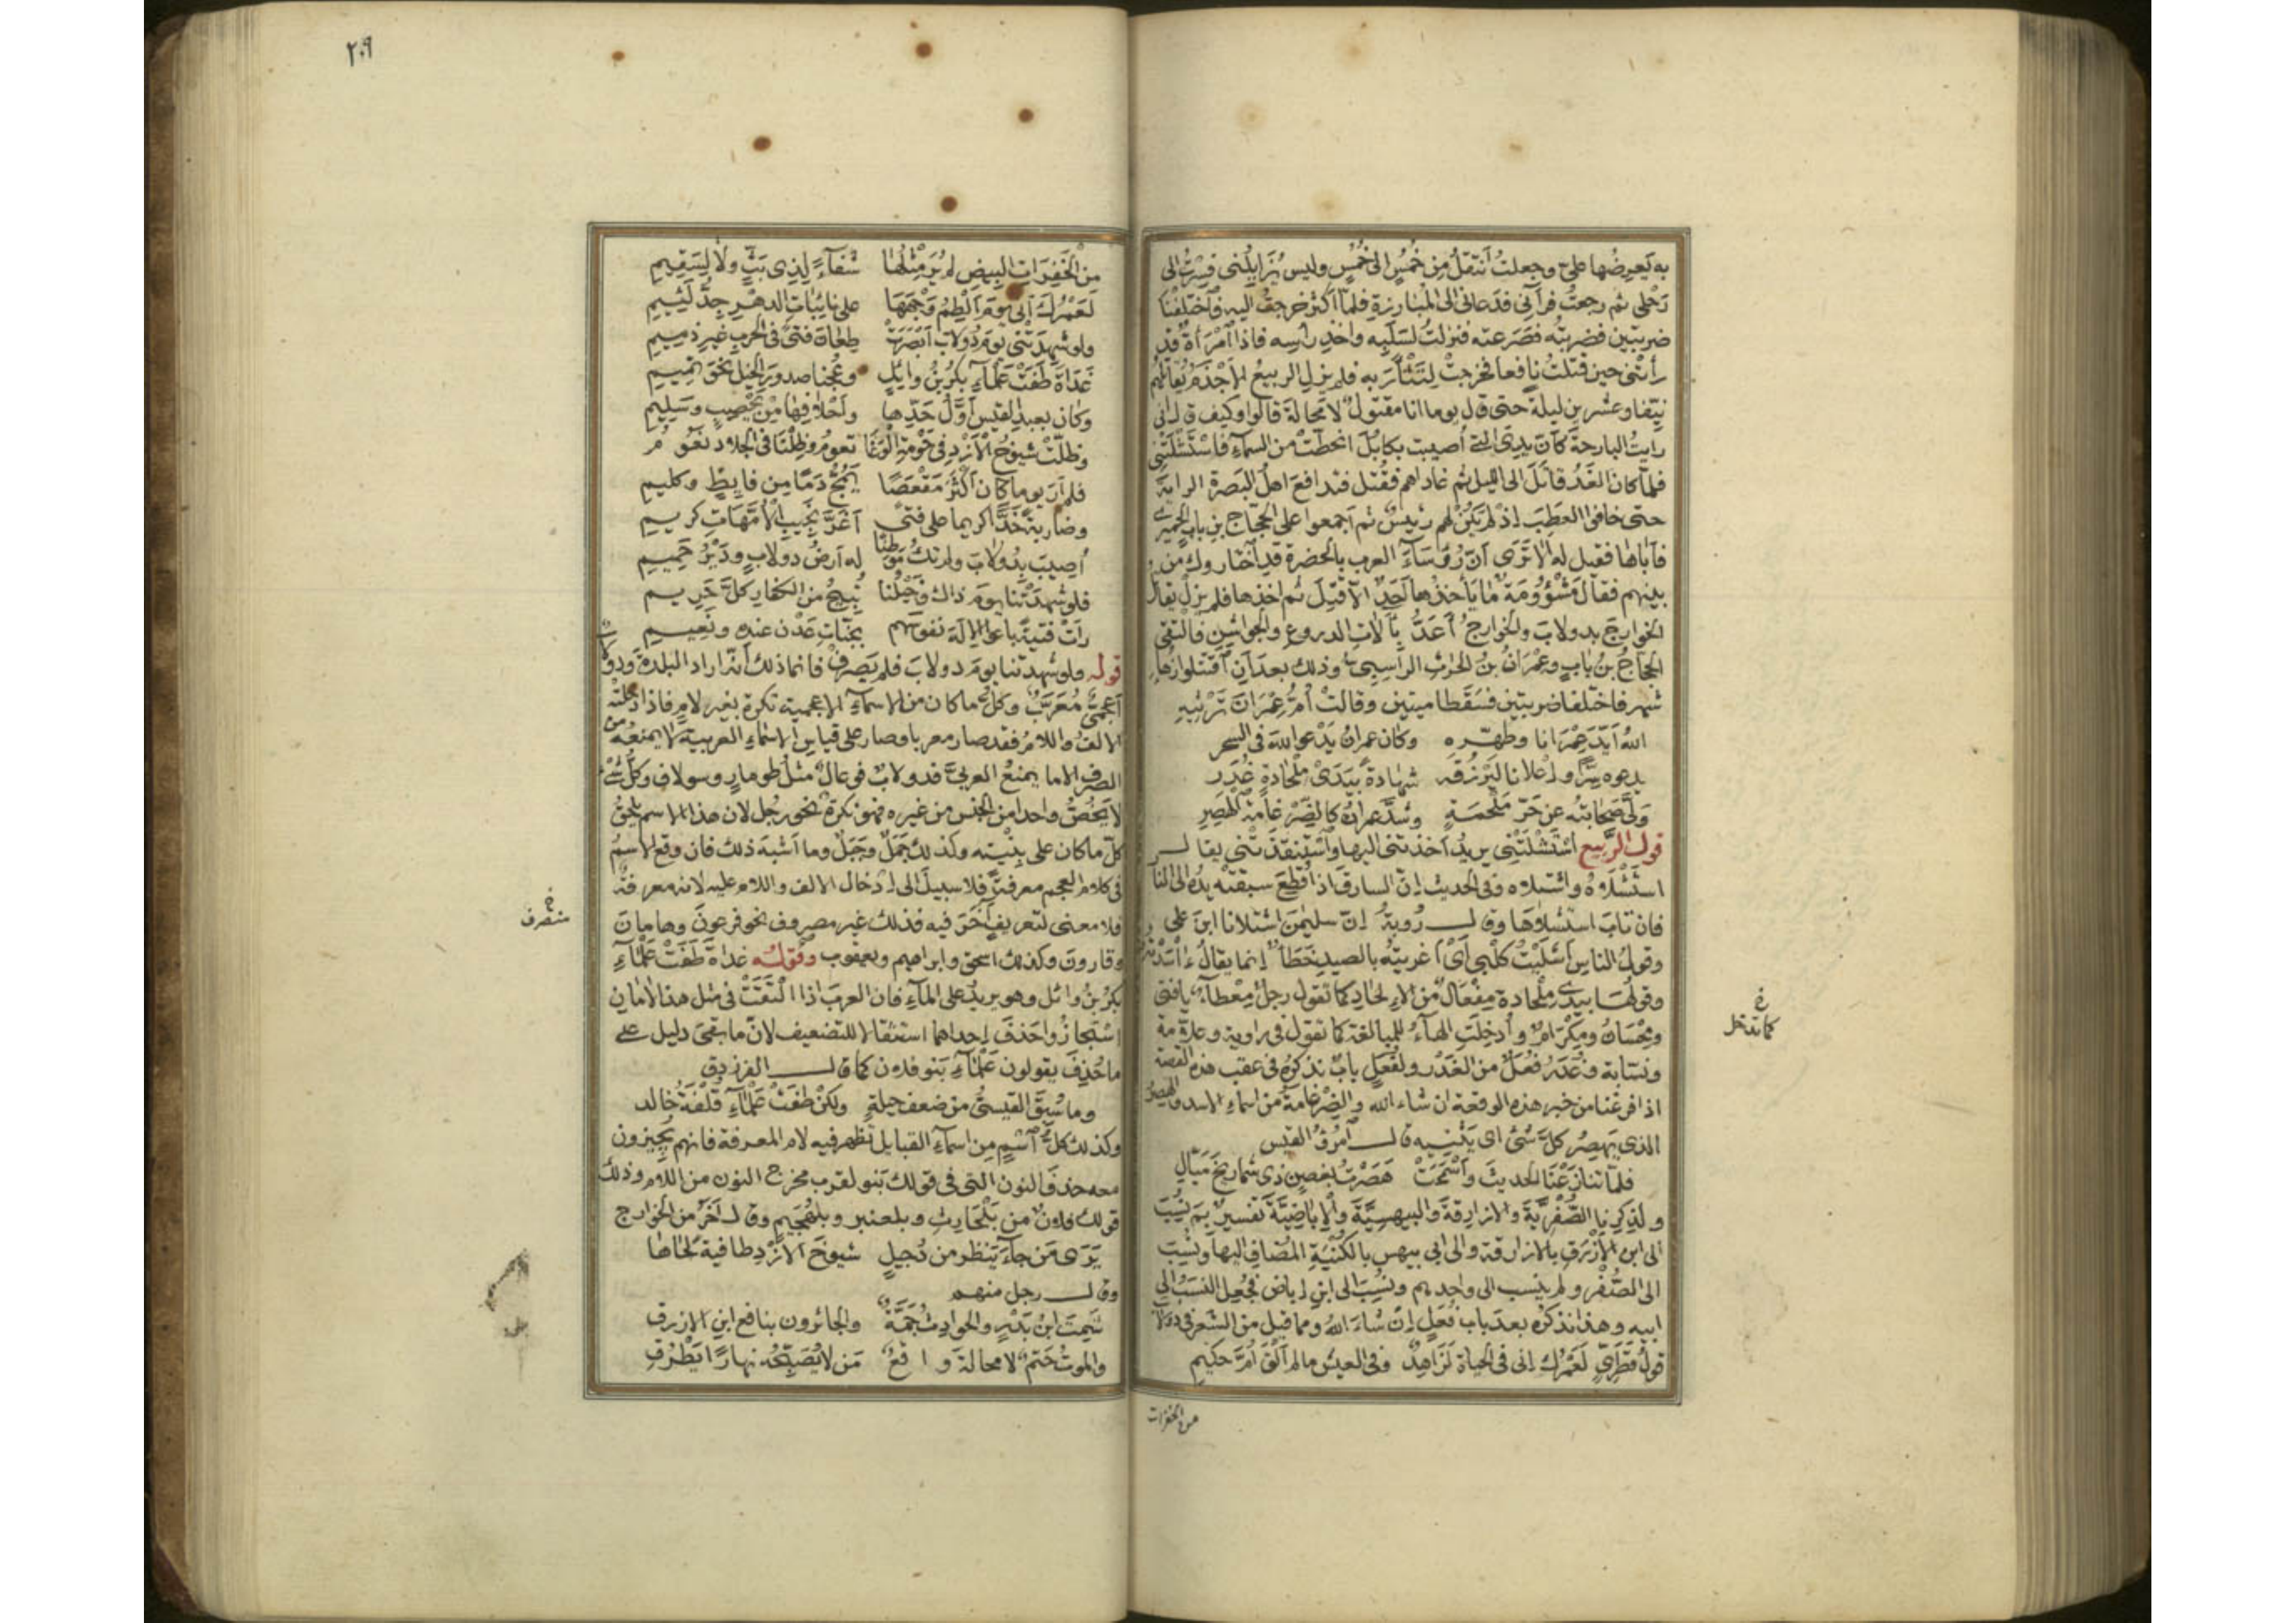 به يَعرِضُها علىّ وجعلتُ أتنقلُ مِن خُمُسٍ الى خُمُسٍ وليس يُزَايِلُني فصِرْتُ الى
رَحْلى ثم رجعتُ فرآنى فدعانى الى المُبارزة فلمّا اكثر خرجتُ اليه فاختلفنا
ضربتين فضربتُه فصَرَعته فنزلتُ لسَلَبِه واخذِ رأسِه فاذا امْرَأةٌ قد
رأتْنى حين قتلتُ نافعا فخرجتْ لِتَثْأرَ به فلم يزلِ الربيعُ الاَجْذمُ يُقاتلهم
نيّفا وعشرين ليلةً حتى قال يوما انا مقتولٌ لا محالةَ قالوا وكيف قال انى
رايتُ البارحةَ كأنّ يدِىَ التى أصيبت بكابُلَ انحطّتْ من السمآءِ فاسْتَشْلَتْنِى
فلمّا كان الغَدُ قاتَلَ الى الليل ثم غاداهم فقُتل فتدافعَ اهلُ البَصرة الراية
حتى خافوا العطَبَ اذ لم يكُنْ لهم رئيسٌ ثم اجمعوا على الحجّاج بنِ بابٍ الحِميرىّ
فأباها فقيل له ألا تَرَى أنّ رُؤَسَآءَ العرب بالحضرة قد اختاروك من
بينهم فقال مَشْؤُومَةٌ ما يأخذُها أحدٌ الّا قُتِلَ ثم اخذها فلم يزلْ يقاتل
الخوارجَ بدولابَ والخوارجُ أعَدُّ بآلاتِ الدروعِ والجواشِنِ فالتقى
الحجّاجُ بنُ بابٍ وعِمْرَانُ بنُ الحرثِ الراسِبِىّ وذلك بعدَ أنِ اقتتلوا زُهاءَ
شهرٍ فاختلفا ضربتين فسَقَطا ميتين وقالتْ أمُّ عِمْرَانَ تَرْثِيهِ
اللهُ أيّدَ عِمْرَانا وطهّره وكان عمرانُ يَدْعو اللهَ فى السحر
يدعوه سِرًّا واعْلانا لِيَرْزُقَه شهادةً بِيَدَىْ مِلْحَادَةٍ غُدَرِ
وَلّى صَحابتُه عن حَرّ مَلْحَمَةٍ وشدّ عمرانُ كالضِّرْغامة الهَصِرِ
قول الربيع اسْتَشْلَتْنِى يريدُ أخذتنى اليها واسْتنقذتْنى يقال
استَشْلَاهُ واشتلاه وفى الحديث إنّ السارقَ اذا قُطِعَ سبقته يدُه الى النار
فان تابَ استشلاها وقال رُوبة إنّ سليمٰنَ اشتلانا ابنَ على
وقولُ الناس أشلَيْتُ كلْبِى أىْ أغريتُه بالصيدِ خَطَأٌ انما يقالُ
وقولُها بِيَدَىْ مِلْحادة مِفْعَالٌ من الاِلحادِ كما تقول رجلٌ مِعْطَآءٌ يا فتى
ومِحْسَانٌ ومِكْرَامٌ وأُدخِلتِ الهآءُ للمبالغة كما تقول فى راوية وعلّامة
ونسّابة وغُدَرُ فُعَلُ من الغَدْرِ ولفُعَلٍ بابٌ نذكرُه فى عقب هذه القصة
اذا فرغنا من خبر هذه الوقعة ان شاء الله والضِّرْغامةُ من اسماءِ الاسد والهصِرُ
الذى يَهصِرُ كلَّ شئ اى يَثْنِيه قال امرؤُ القيس
فلمّا تنازَعْنا الحديثَ واسْمَحَتْ هَصَرْتُ بغصنٍ ذى شماريخَ مَيّالِ
ولذِكرِنا الصُّفْرِيّةَ والازارِقةَ والبيهسِيَّةَ والإباضِيّةَ تفسيرٌ بِمَ نُسِبَ
الى ابنِ الازْرَقِ بالازارقة والى ابى بيهسٍ بالكُنْيَةِ المُضافِ اليها ونُسِبَ
الى الصُّفْرِ ولم يُنسب الى واحدهم ونُسِبَ الى ابنِ إباض فجُعِل النسَبُ الى
ابيه وهذا نذكرُه بعدَ باب فُعَلٍ إن شاءَ اللهُ ومما قيل من الشعر فى دولاب
قولُ قطرىّ لَعَمْرُك إنى فى الحياة لَزَاهِدٌ وفى العيش ما لم ألقَ أمَّ حكيمِ
من الخفرات
كما تدخل
٢٠٩
من الخَفِرَاتِ البِيضِ لم يُرَ مِثْلُها شفآءً لِذِى بَثٍّ ولا لِسَقِيمِ
لَعَمْرُك إنى يومَ ألْطِمُ وَجْهَها على نائباتِ الدهرِ جِدُّ لئيمِ
ولو شهِدَتْنى يومَ دُولابَ أبصرتْ طِعانَ فتًى فى الحربِ غيرِ ذميمِ
غَدَاةَ طَفَتْ عَلْمَآءِ بكرُ بنُ وائلٍ وعُجْنا صدورَ الخيلِ نحوَ تميمِ
وكان بعبد القيس أوّلُ حَدّها وأحْلافِها من يَحْصُبٍ وسَلِيمِ
وظلّتْ شيوخُ الأزدِ فى حَوْمةِ الوَغَا تعومُ وظِلْنا فى الجِلاد نعوم
فلم أرَ يوما كان أكثرَ مُقْعَصًا يَمُجُّ دمًا مِن فائظٍ وكليمِ
وضاربةٍ خدًّا كريما على فتًى أغرَّ نجيبِ الأُمّهاتِ كريم
أُصيبَ بِدُولابَ ولم تكُ مَوْطِنًا له ارضُ دولابٍ ودَيْرُ حَمِيمِ
فلو شهِدَتْنا يومَ ذاك وخيلُنا تُبِيحُ من الكفّار كلَّ حَرِيمِ
رأتْ فتيةً باعوا الإلهَ نفوسَهم بجنّاتِ عَدْنٍ عنده ونَعِيمِ
قوله ولو شهدتنا يومَ دولابَ فلم يَصرِفْ فانما ذلك لأنه اراد البلدةَ ودولاب
أعجمىٌّ مُعَرَّبٌ وكلُّ ما كان من الاسمآءِ الاعجمية نكرةً بغير لامٍ فاذا دخلته
الالفُ واللامُ فقد صار معربا وصار على قياس الاسماء العربية لا يمنعُه من
الصرف الا ما يمنعُ العربىَّ فدولابٌ فُوعالٌ مثلُ طومارٍ وسولاف وكلُّ شئ
لا يَخُصُّ واحدا من الجنس من غيره فهو نكرةٌ نحو رجل لان هذا الاسم يلحقُ
كلَّ ما كان على بِنْيتِه وكذلك جَمَلٌ وجَبَلٌ وما أشبهَ ذلك فان وقع الاسمُ
فى كلام العجم معرفةً فلا سبيلَ الى ادخال الالف واللام عليه لانه معرفةٌ
فلا معنى لتعريفٍ آخَرَ فيه فذلك غير مصروف نحو فرعونَ وهامانَ
وقارونَ وكذلك اسحق وابراهيم ويعقوب وقوله غداةَ طَفَتْ عَلْمَآءِ
بكرُ بنُ وائل وهو يريد على المآءِ فان العربَ اذا التقَتْ فى مثل هذا لامان
استجازوا حَذفَ إحداهما استثقالا للتضعيف لانّ ما بقىَ دليل على
ما حُذِفَ يقولون عَلْمآءِ بنو فلان كما قال الفرزدق
وما سُبِقَ القيسىُّ من ضعف حيلةٍ ولكنْ طفَتْ عَلْمآءِ قُلْفَةُ خالد
وكذلك كلُّ اسْمٍ مِن اسمآءِ القبايل تظهر فيه لام المعرفة فانهم يُجِيزون
معه حذفَ النون التى فى قولك بَنو لقرب مخرج النون من اللام وذلك
قولك فلانٌ من بَلْحَارِثِ وبلعنبر وبلهُجَيم وقال آخر من الخوارج
يَرَى مَن جآءَ ينظُر من دُجيلٍ شيوخَ الازْدِ طافيةً لحاها
وقال رجل منهم
شَمِتَ ابنُ بَدْرٍ والحوادثُ جَمَّةٌ والجائرون بنافع ابنِ الازرقِ
والموتُ حَتمٌ لا محالةَ واقعٌ مَن لا يُصَبِّحْه نهارًا يَطْرُقِ
منصرف